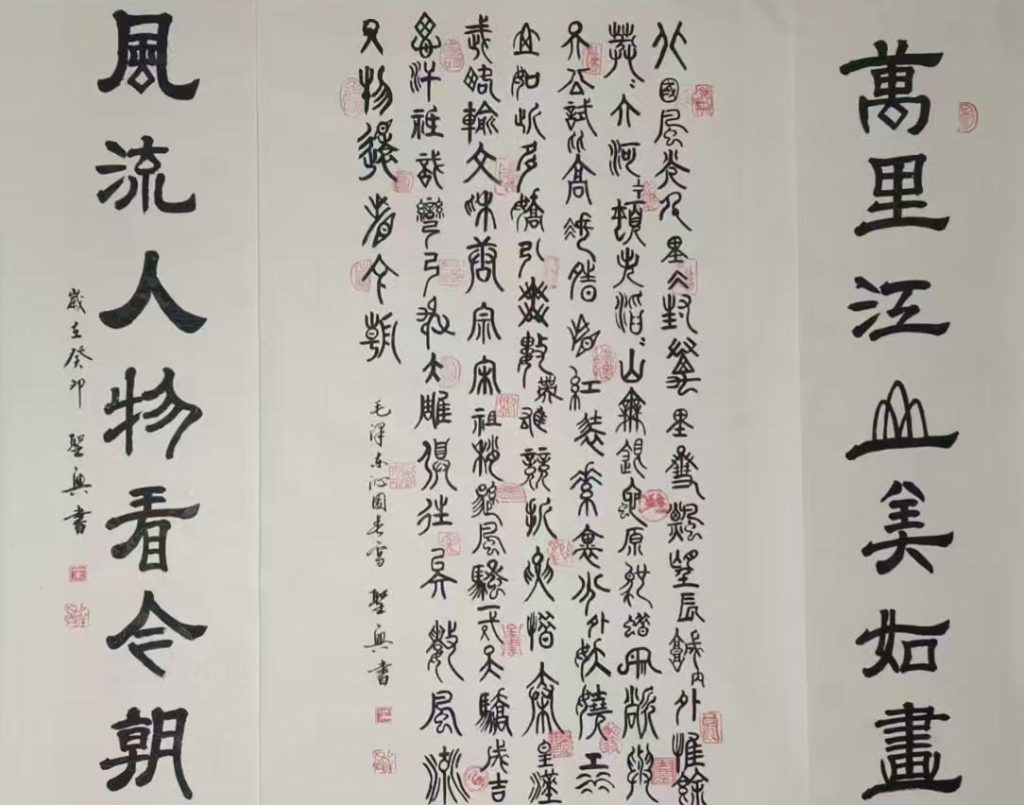 萬里江山美如畫
北國風光千里冰封萬里雪飄望長城內外惟餘
莽莽大河上下頓失滔滔山舞銀蛇原馳蠟象欲與
天公試比高須晴日看紅裝素裹分外妖嬈江
山如此多嬌引無數英雄競折腰惜秦皇漢
武略輸文采唐宗宋祖稍遜風騷一代天驕成吉
思汗祇識彎弓射大雕俱往矣數風流
人物還看今朝
毛澤東沁園春雪 聖興書
風流人物看今朝
歲在癸卯 聖興書